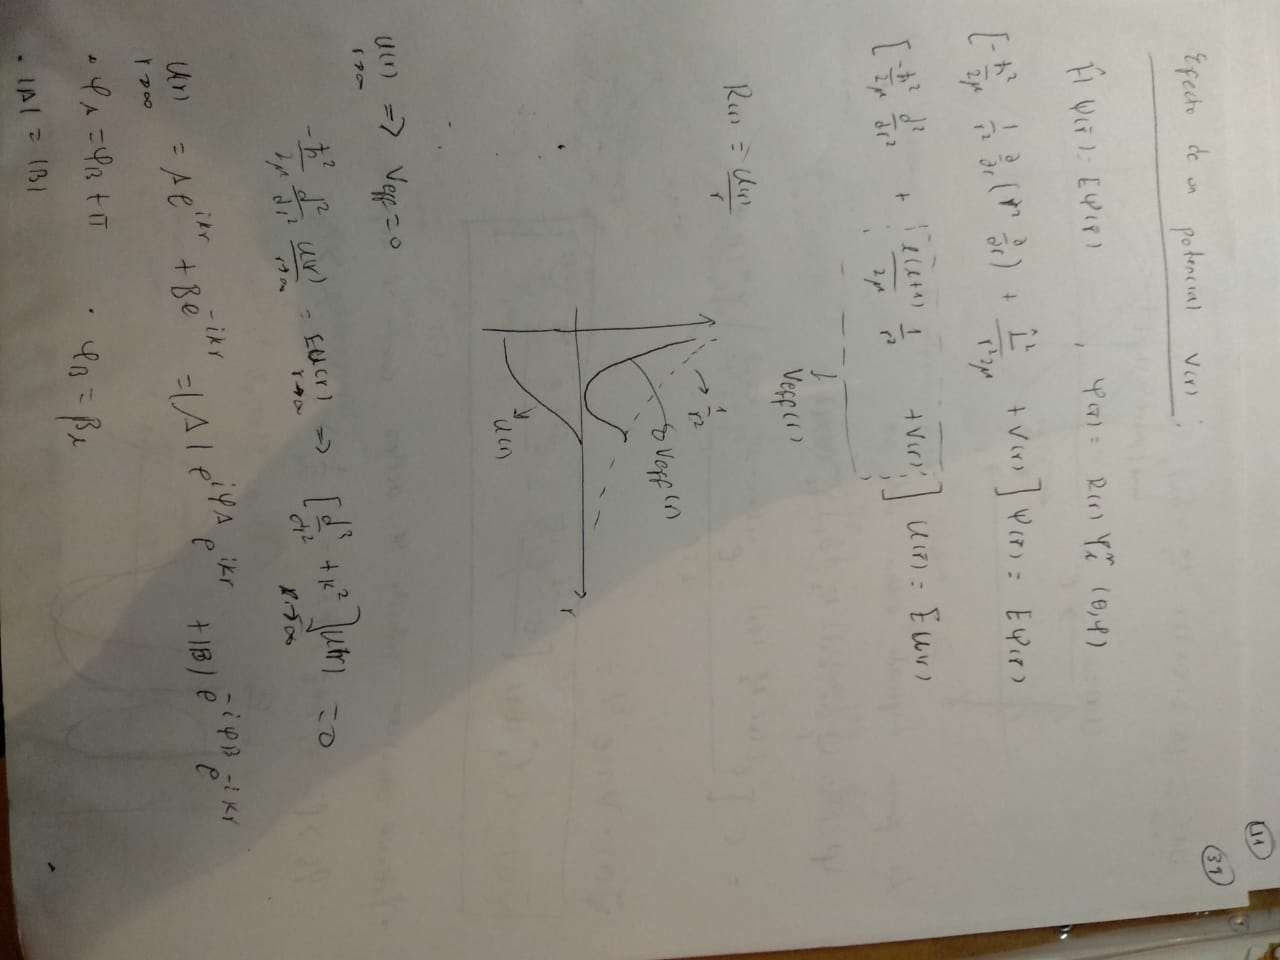 11
39
Efecto de un potencial V(r):
Ĥ ψ(r̄) = Eψ(r̄) , ψ(r̄) = R(r) Yₗᵐ (θ,φ)
[-ħ²/2μ 1/r² ∂/∂r (r² ∂/∂r) + L̂²/r²2μ + V(r)] ψ(r̄) = Eψ(r̄)
[-ħ²/2μ d²/dr² + l(l+1)/2μ 1/r² + V(r)] u(r) = E u(r)
Veff(r)
R(r) = u(r)/r
1/r²
Veff(r)
u(r)
r
u(r) r→∞ ⇒ Veff=0
-ħ²/2μ d²/dr² u(r) r→∞ = Eu(r) r→∞ ⇒ [d²/dr² + k²] u(r) r→∞ = 0
u(r) r→∞ = Ae^{ikr} + Be^{-ikr} = |A| e^{iφA} e^{ikr} + |B| e^{-iφB} e^{-ikr}
• φA = φB + π • φB = βₗ
• |A| = |B|